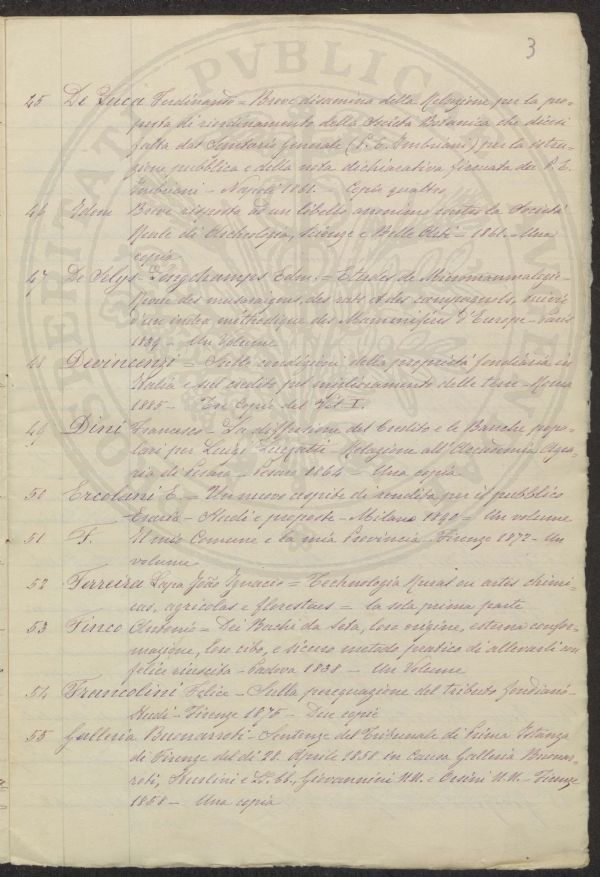 3
45 De Luca Ferdinando = Breve disamina della Relazione per la pro-
posta di riordinamento della Società Botanica che dicesi
fatta dal Secretario Generale (P. E. Imbriani) per la istru-
zione pubblica e della nota dichiarativa firmata da P. E.
Imbriani - Napoli 1861. - Copie quattro
46 Idem Breve risposta ad un libello anonimo contro la Società
Reale di Archeologia, Scienze e Belle Arti - 1861 - Una
copia
47 De Selys Longchamps Edm. = Etudes de Micromammalogie -
des musaraignes, des rats et des campagnols, suivie
d'un index méthodique des Mammifères d'Europe - Paris
1839 - Un Volume
48 Devincenzi = Sulle condizioni della proprietà fondiaria in
Italia e sul credito pel miglioramento delle terre - Roma
1885 - Copie del Vol. I.
49 Dini Francesco - La diffusione del Credito e le Banche popo-
lari per Luigi Luzzatti - Relazione all'Accademia Agra-
ria di Pesaro - Pesaro 1864 - Una copia
50 Ercolani E. - Un nuovo cespite di rendita per il pubblico
Erario - Studi e proposte - Milano 1890 = Un volume
51 F. Il mio Comune e la mia Provincia - Firenze 1872 - Un
volume
52 Ferreira Lapa João Ignacio = Technologia Rural ou artes chimi-
cas, agricolas e florestaes = la sola prima parte
53 Finco Antonio = Dei Bachi da Seta, loro origine, esterna confor-
mazione, loro cibo, e sicuro metodo pratico di allevarli con
felice riuscita - Padova 1838 - Un Volume
54 Francolini Felice - Sulla perequazione del tributo fondiario -
Studi - Firenze 1875 - Due copie
55 Galleria Buonarroti - Sentenze del Tribunale di Prima Istanza
di Firenze del dì 28 Aprile 1858 in Causa Galleria Buonar-
roti, e LL. CC., Giovannini N.N. e Orsini N.N. - Firenze
1858 - Una copia